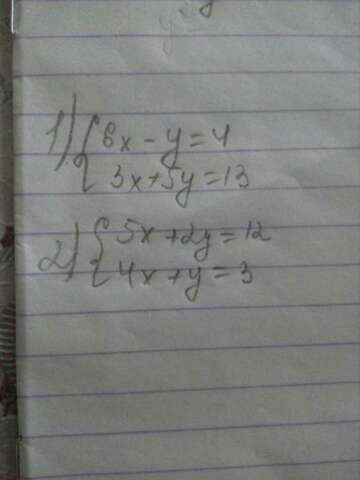 1) { 6x - y = 4
3x + 5y = 13
2) { 5x + 2y = 12
4x + y = 3